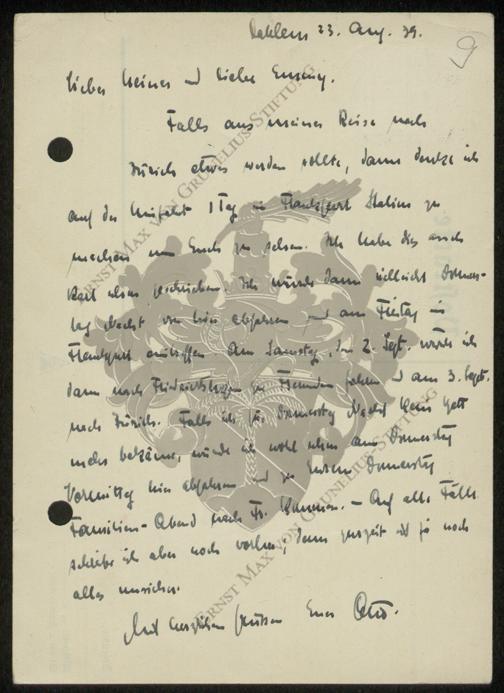 Dahlem 23. Aug. 39.
9
Lieber Werner und liebe
Falls aus meiner Reise nach
Zürich etwas werden sollte, dann denke ich
auf der Hinfahrt 1 Tag in Frankfurt Station zu
machen um Euch zu sehen. Ich habe dies auch
Karl schon geschrieben. Ich würde dann vielleicht Donners-
tag Nacht von hier abfahren und am Freitag in
Frankfurt eintreffen. Am Samstag, den 2. Sept. würde ich
dann nach Friedrichshafen zu Freunden fahren und am 3. Sept.
nach Zürich. Falls ich für Donnerstag Nacht kein Bett
mehr bekäme, würde ich wohl schon am Donnerstag
Vormittag hier abfahren und zu Donnerstag
Familien-Abend nach Fr. kommen. – Auf alle Fälle
schreibe ich aber noch vorher, denn zurzeit ist ja noch
alles unsicher.
Mit herzlichen Grüssen Euer Otto.
ERNST MAX VON GRUNELIUS-STIFTUNG
ERNST MAX VON GRUNELIUS-STIFTUNG